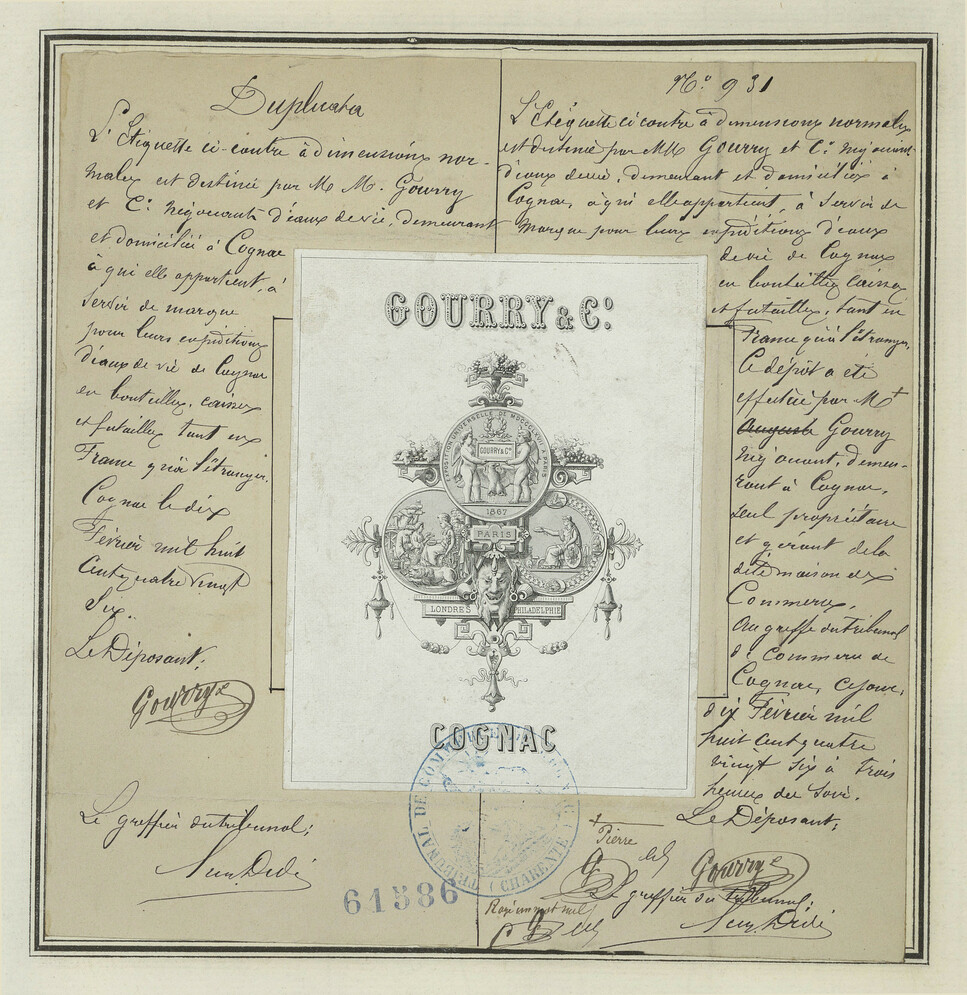 Duplicata
L'Etiquette ci-contre à dimensions nor-
males est destinée par M M. Gourry
et Cie. négociants d'eaux de vie, demeurant
et domiciliés à Cognac
à qui elle appartient, à
servir de marque
pour leurs expéditions
d'eaux de vie de Cognac
en bouteilles, caisses
et futailles tant en
France qu'à l'étranger.
Cognac le dix
Février mil huit
Cent quatre vingt
Six.
Le Déposant;
Gourry
Le greffier du tribunal;
No. 931
L'Etiquette ci contre à dimensions normales
est destinée par MM Gourry et Cie. négociants
d'eaux de vie, demeurant et domiciliés à
Cognac, à qui elle appartient, à servir de
marque pour leurs expéditions d'eaux
de vie de Cognac
en bouteilles caisses
et futailles, tant en
France qu'à l'étranger,
Ce dépôt a été
effectué par Mr
Auguste Gourry
négociant, demeu-
rant à Cognac,
seul propriétaire
et gérant de la
dite maison de
Commerce,
Au greffe du tribunal
de Commerce de
Cognac, ce jour,
dix Février mil
huit cent quatre
vingt six à trois
heures du soir.
Le Déposant;
Pierre
Gourry
Le greffier du tribunal;
Rayé un mot nul
GOURRY & Co.
EXPOSITION UNIVERSELLE DE MDCCCLXVII A PARIS
GOURRY & Co
1867
PARIS
LONDRES
PHILADELPHIE
COGNAC
TRIBUNAL DE COMMERCE DE COGNAC (CHARENTE)
61586